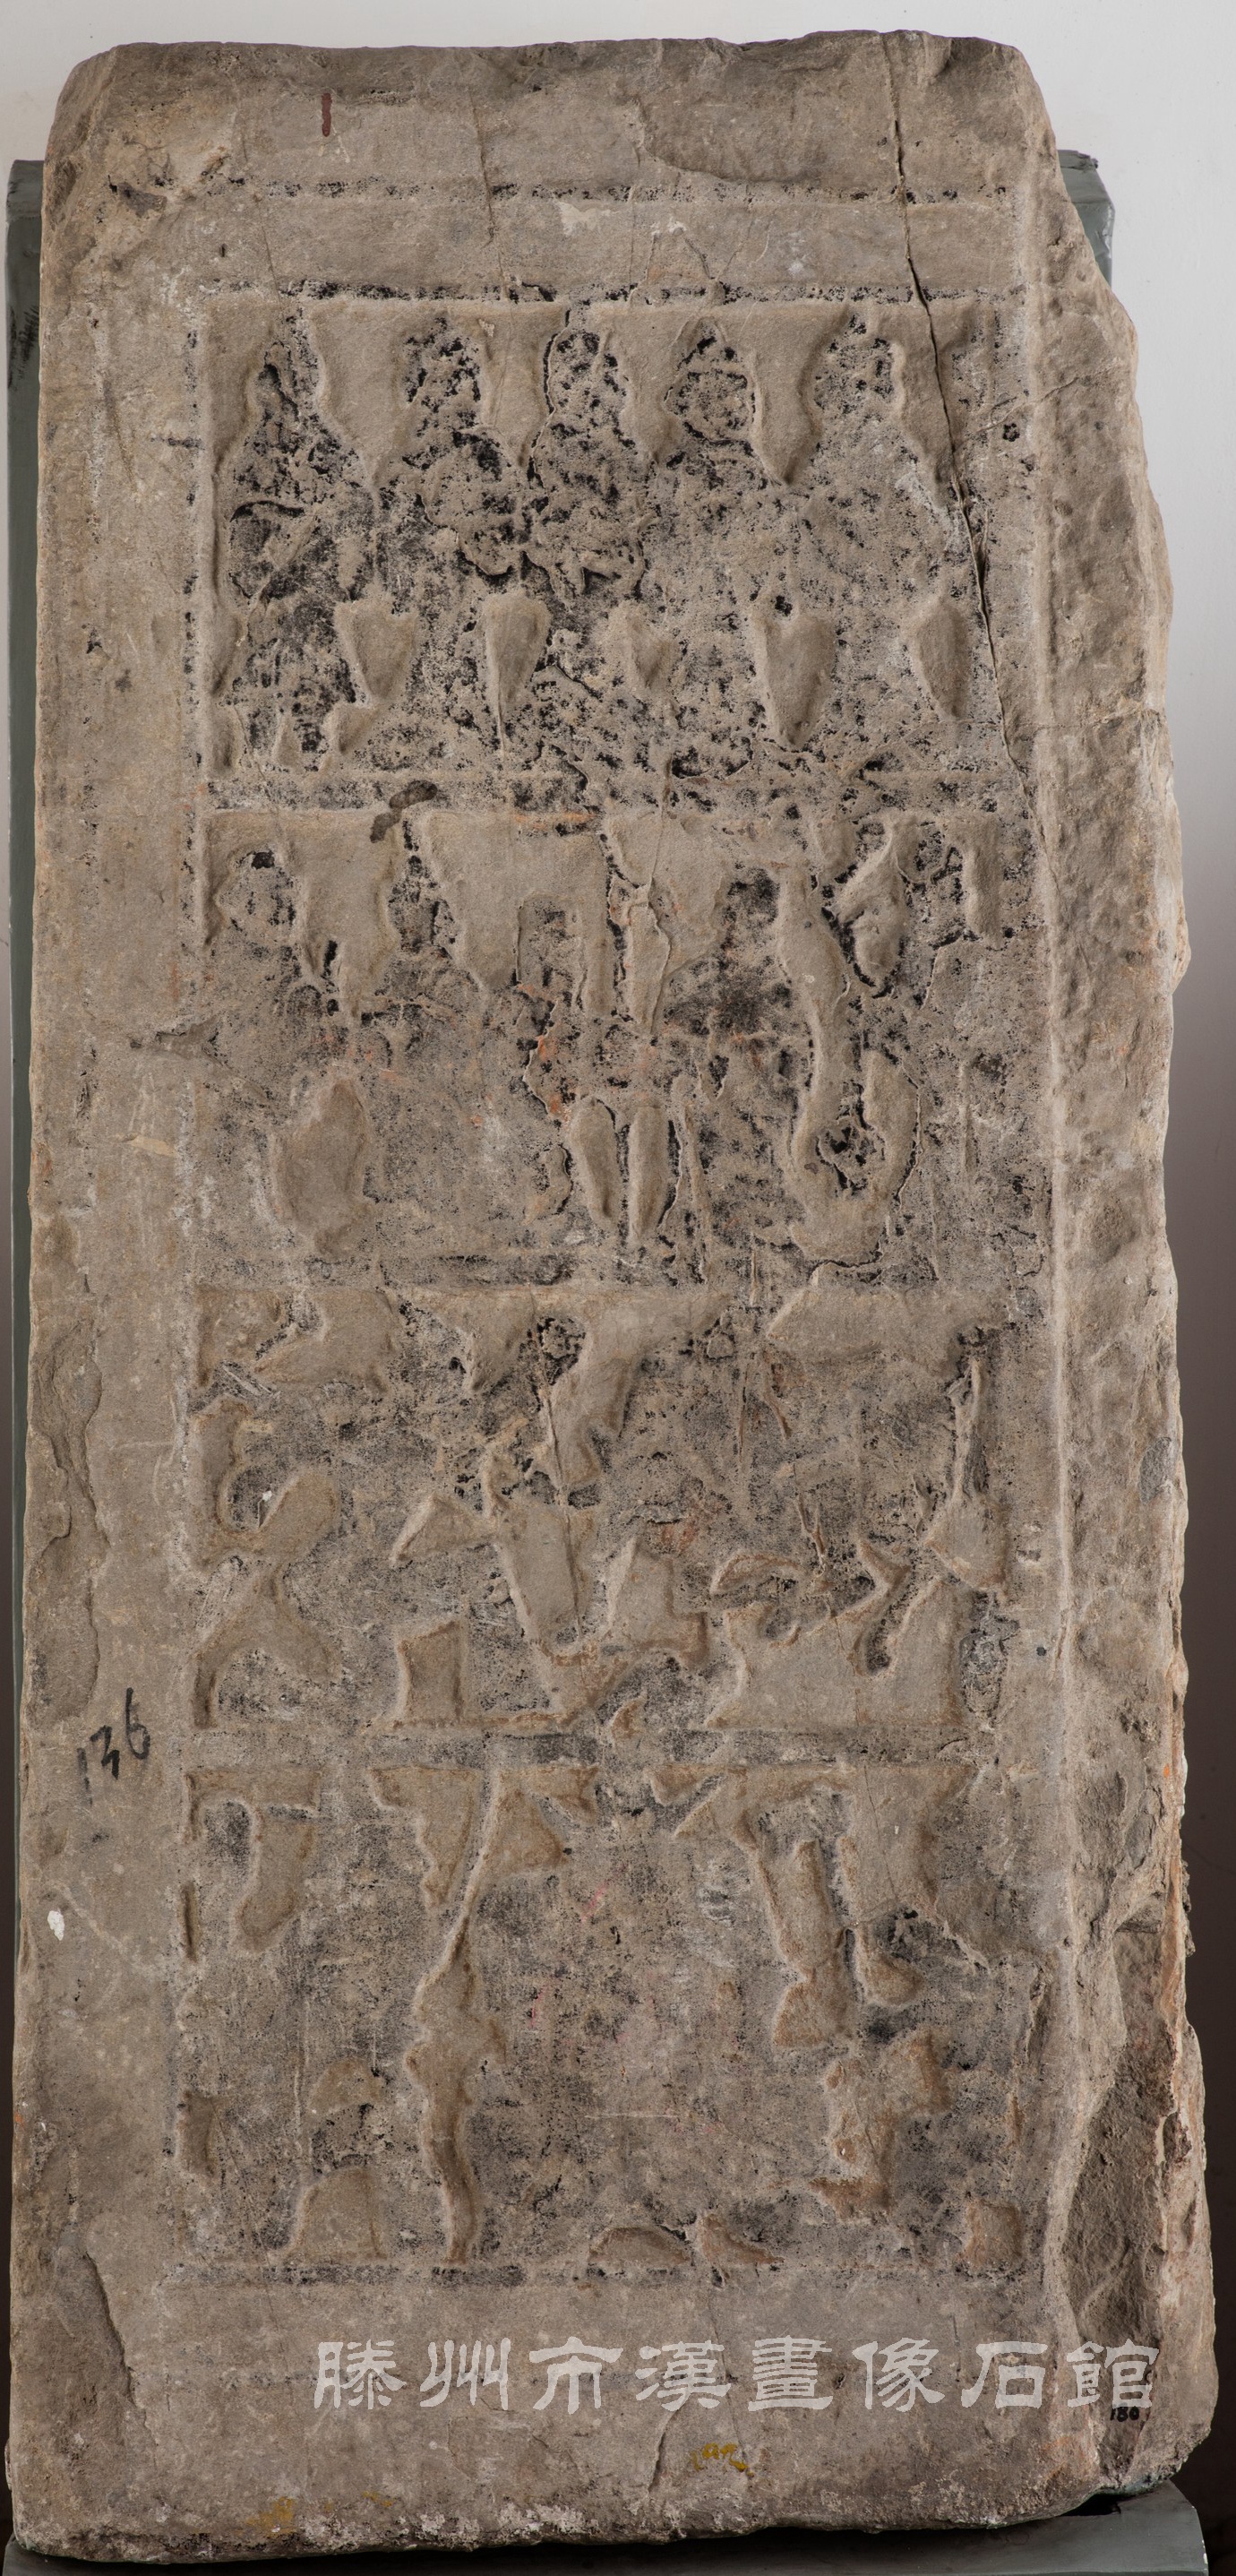 136
滕州市漢畫像石館
180